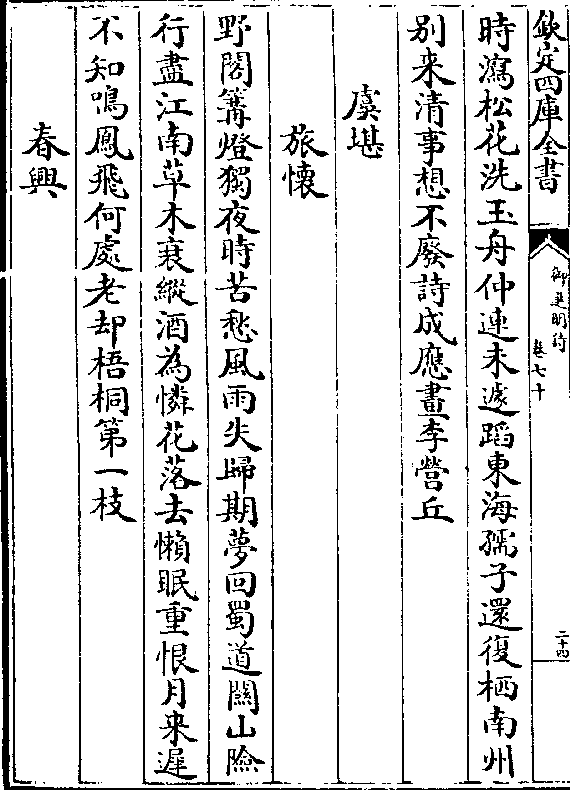 欽定四庫全書
御選明詩
卷七十
二十四
時瀉松花洗玉舟仲連未遂蹈東海孺子還復栖南州
別来清事想不廢詩成應畫李營丘
虞堪
旅懷
野閣篝燈獨夜時苦愁風雨失歸期夢回蜀道關山險
行盡江南草木衰縱酒為憐花落去懶眠重恨月来遲
不知鳴鳳飛何處老却梧桐第一枝
春興